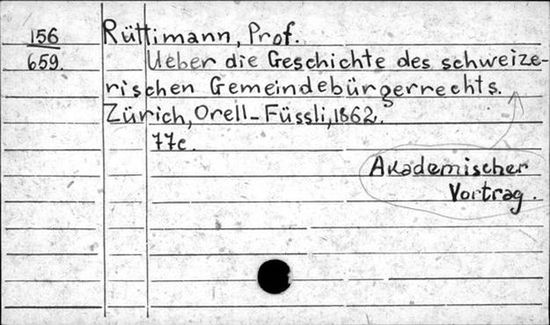 156 Rüttimann, Prof.
659. Ueber die Geschichte des schweize-
rischen Gemeindebürgerrechts.
Zürich, Orell-Füssli, 1862.
77c.
Akademischer
Vortrag.